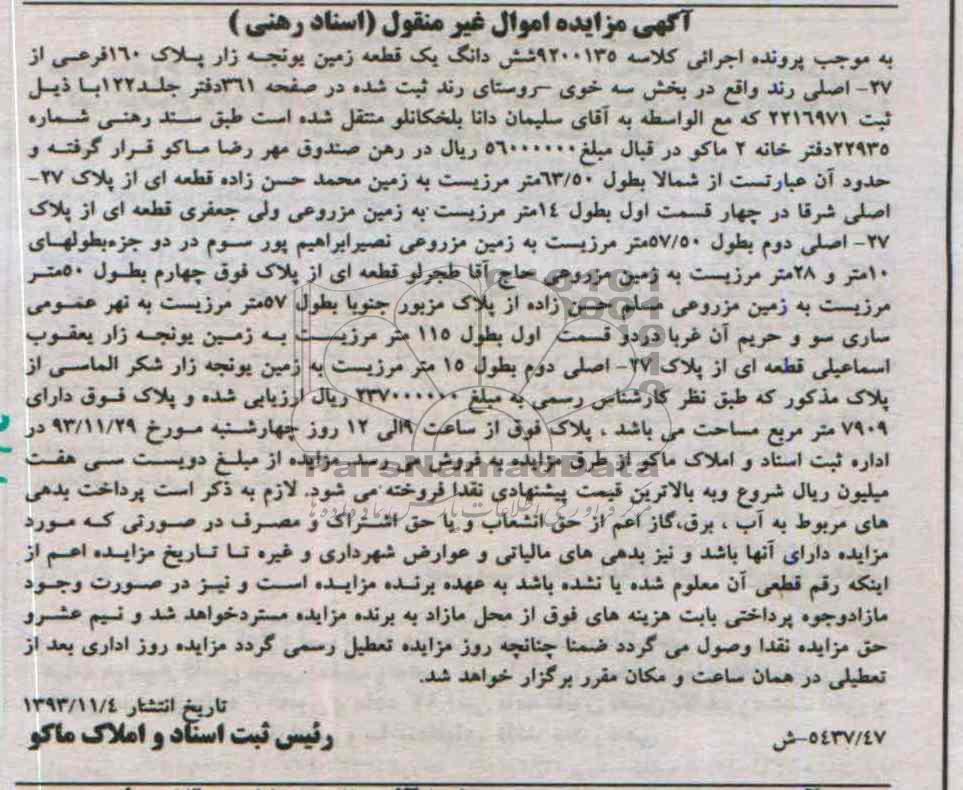 آگهی مزایده اموال غیر منقول (اسناد رهنی )
به موجب پرونده اجرائی کلاسه ۹۲۰۰۱۳۵شش دانگ یک قطعه زمین یونجـه زار پـلاک ۱۶۰فرعـی از
۲۷- اصلی رند واقع در بخش سه خوی -روستای رند ثبت شده در صفحه ۳۶۱دفتر جلـد۱۲۲بـا ذیـل
ثبت ۲۲۱۶۹۷۱ که مع الواسطه به آقای سلیمان دانا بلخکانلو منتقل شده است طبق سـند رهنـی شـماره
۲۲۹۳۵دفتر خانه ۲ ماکو در قبال مبلغ۵۶۰۰۰۰۰۰ ریال در رهن صندوق مهر رضا مـاکو قـرار گرفتـه و
حدود آن عبارتست از شمالا بطول ۶۳/۵۰متر مرزیست به زمین محمد حسن زاده قطعه ای از پلاک ۲۷-
اصلی شرقا در چهار قسمت اول بطول ۱۴متر مرزیست به زمین مزروعی ولی جعفری قطعه ای از پلاک
۲۷- اصلی دوم بطول ۵۷/۵۰متر مرزیست به زمین مزروعی نصیرابراهیم پور سـوم در دو جزءبطولهـای
۱۰متر و ۲۸متر مرزیست به زمین مزروعی حاج آقا طجرلو قطعه ای از پلاک فوق چهارم بطـول ۵۰متـر
مرزیست به زمین مزروعی مسلم حسن زاده از پلاک مزبور جنوبا بطول ۵۷متر مرزیست به نهر عمـومی
ساری سو و حریم آن غربا دردو قسمت اول بطول ۱۱۵ متر مرزیسـت بـه زمـین یونجـه زار یعقـوب
اسماعیلی قطعه ای از پلاک ۲۷- اصلی دوم بطول ۱۵ متر مرزیست به زمین یونجه زار شکر الماسـی از
پلاک مذکور که طبق نظر کارشناس رسمی به مبلغ ۲۳۷۰۰۰۰۰۰ ریال ارزیابی شده و پلاک فـوق دارای
۷۹۰۹ متر مربع مساحت می باشد ، پلاک فوق از ساعت ۹الی ۱۲ روز چهارشـنبه مـورخ ۹۳/۱۱/۲۹ در
اداره ثبت اسناد و املاک ماکو از طرق مزایده به فروش می رسد. مزایده از مبلـغ دویسـت سـی هفـت
میلیون ریال شروع وبه بالاترین قیمت پیشنهادی نقدا فروخته می شود. لازم به ذکر است پرداخت بدهی
های مربوط به آب ، برق،گاز اعم از حق انشعاب و یا حق اشـتراک و مصـرف در صـورتی کـه مـورد
مزایده دارای آنها باشد و نیز بدهی های مالیاتی و عوارض شهرداری و غیره تـا تـاریخ مزایـده اعـم از
اینکه رقم قطعی آن معلوم شده یا نشده باشد به عهده برنـده مزایـده اسـت و نیـز در صـورت وجـود
مازادوجوه پرداختی بابت هزینه های فوق از محل مازاد به برنده مزایده مستردخواهد شد و نـیم عشـرو
حق مزایده نقدا وصول می گردد ضمنا چنانچه روز مزایده تعطیل رسمی گردد مزایده روز اداری بعد از
تعطیلی در همان ساعت و مکان مقرر برگزار خواهد شد.
تاریخ انتشار ۱۳۹۳/۱۱/۴
۵۴۳۷/۴۷-ش
رئیس ثبت اسناد و املاک ماکو
ParsNamadData